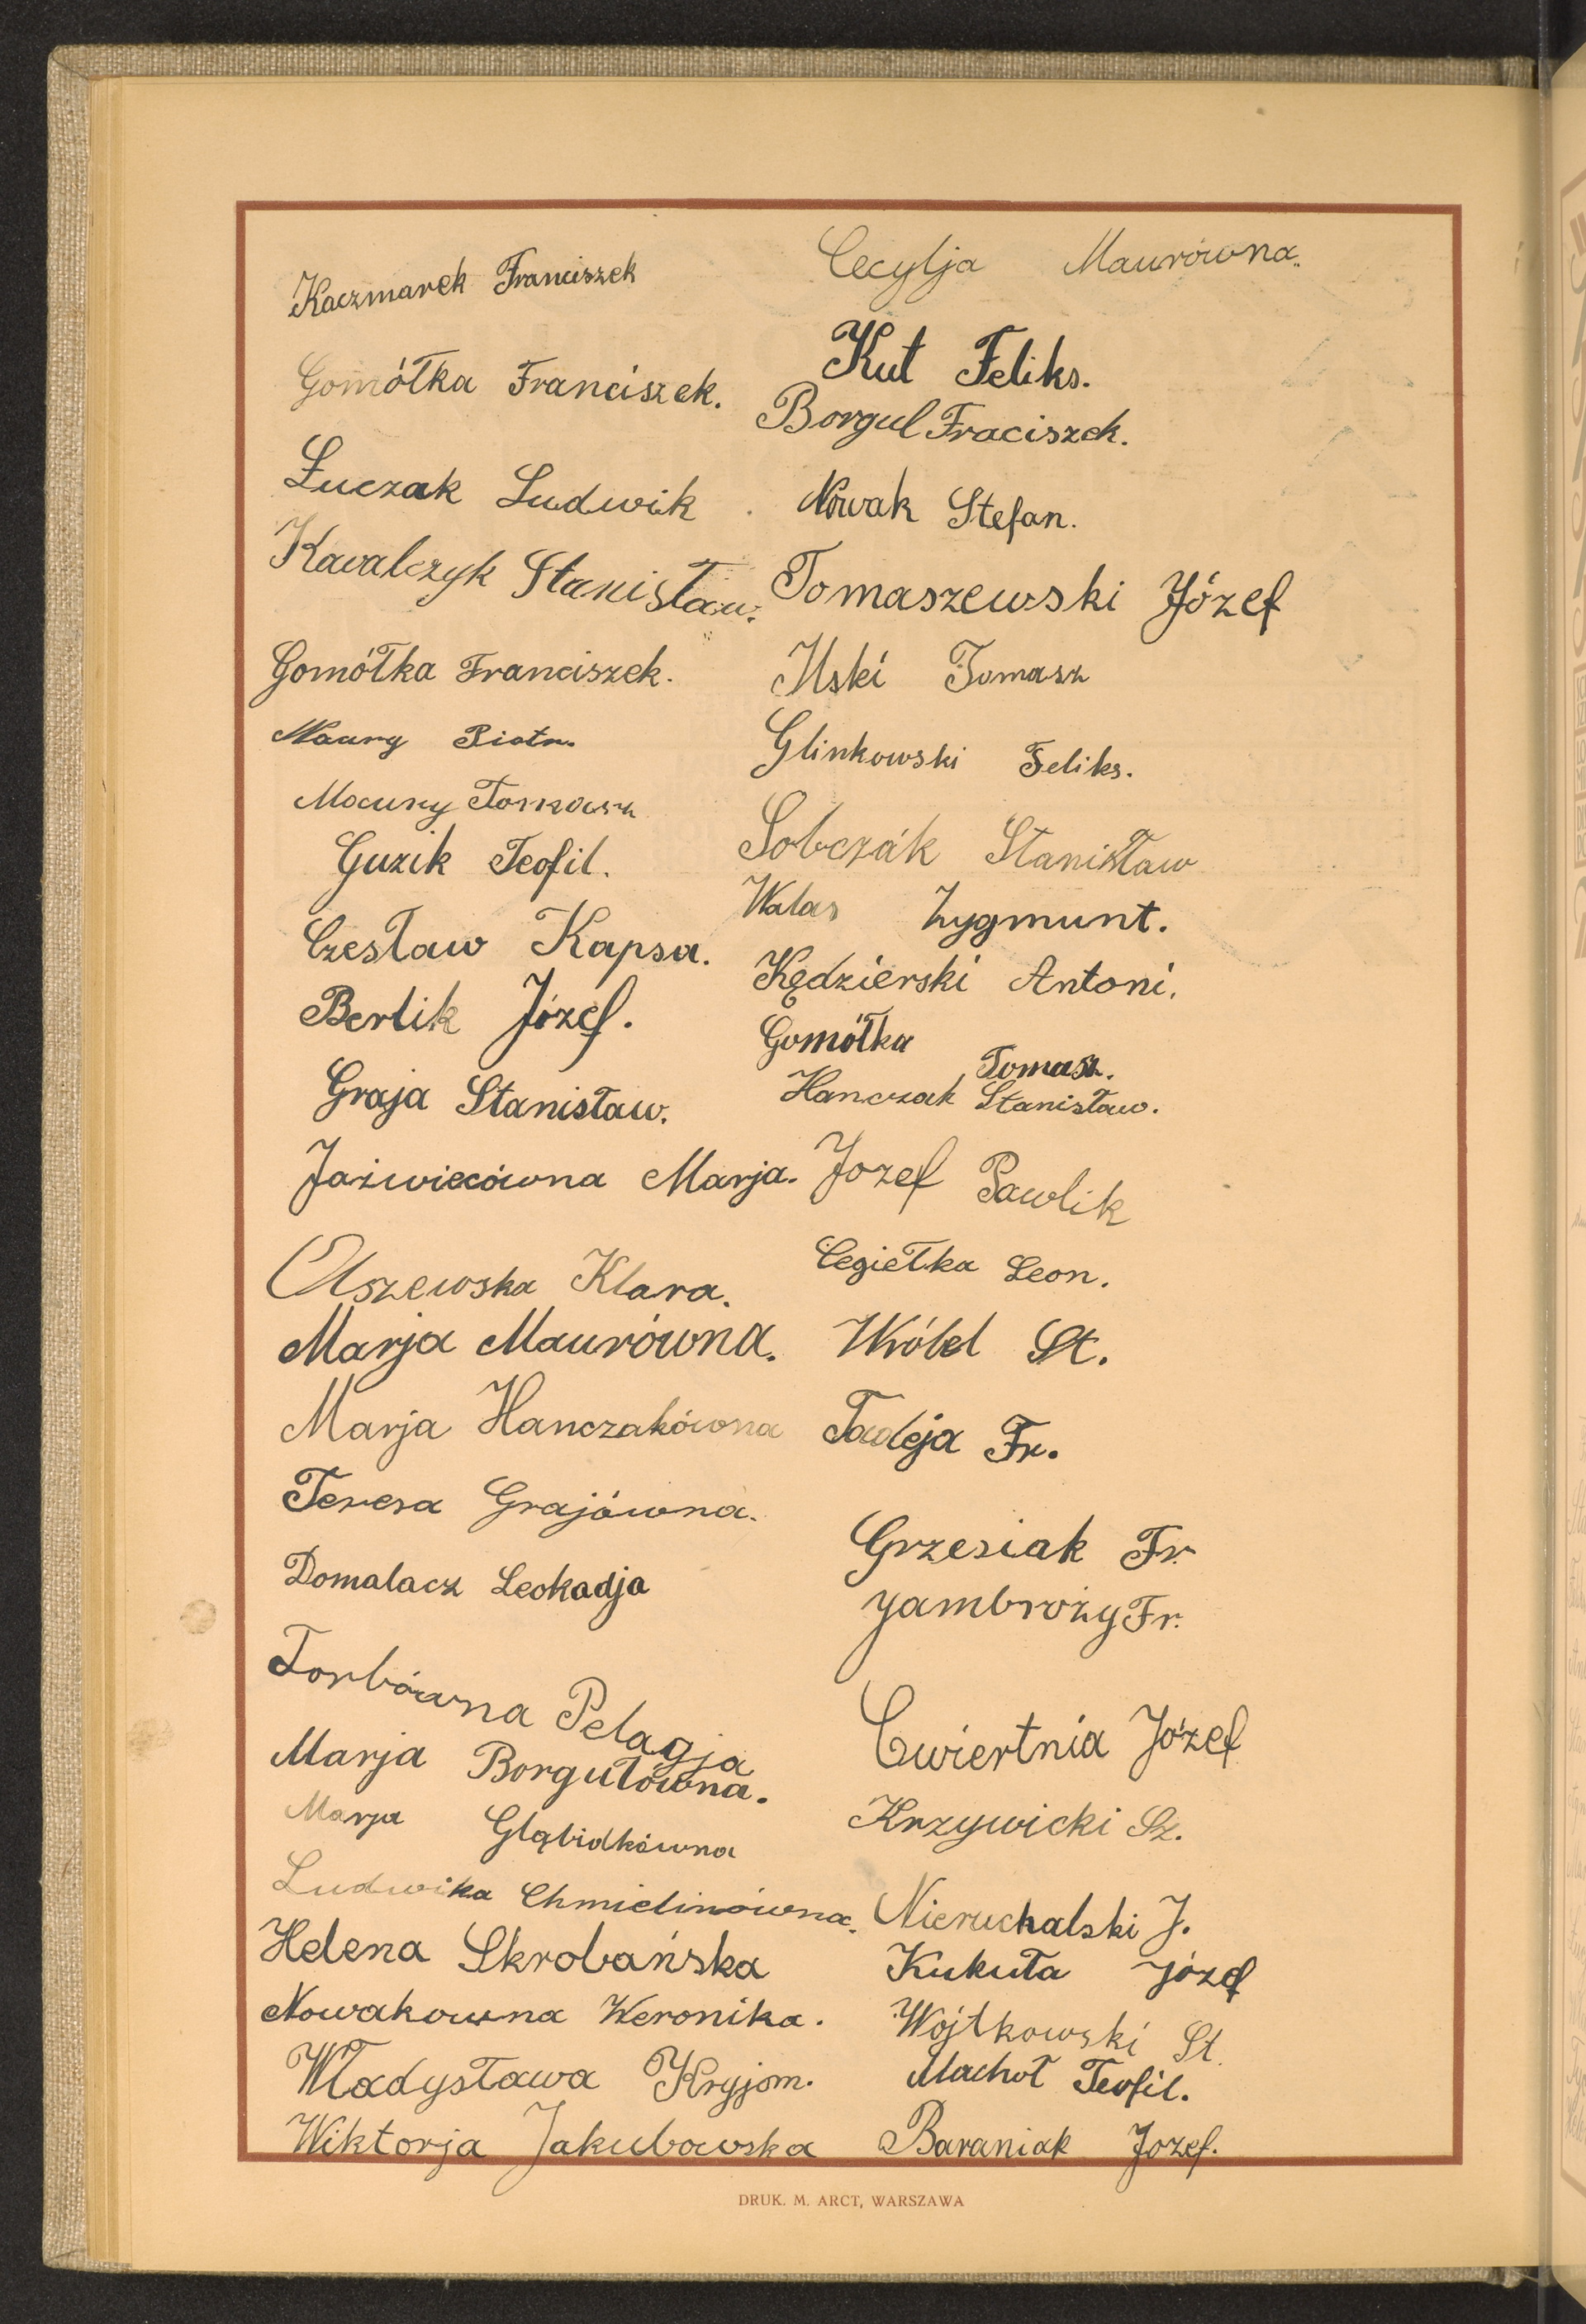 Kaczmarek Franciszek
Gomółka Franciszek.
Łuczak Ludwik
Kawalczyk Stanisław.
Gomółka Franciszek.
Maury Piotr.
Maury Tomasz
Guzik Teofil.
Czesław Kapsa.
Bertik Józef.
Graja Stanisław.
Jaźwiecówna Marja.
Olszewska Klara.
Marja Maurówna.
Marja Hanczakówna
Teresa Grajówna.
Domalacz Leokadja
Torbówna Pelagja
Marja Borgułówna.
Marja
Ludwika Chmielinówna.
Helena Skrobańska
Nowakowna Weronika.
Władysława Kryjom.
Wiktorja Jakubowska
Cecylja Maurówna.
Kut Feliks.
Borgul Fraciszek.
Nowak Stefan.
Tomaszewski Józef
Ilski Tomasz
Glinkowski Feliks.
Sobczak Stanisław
Walas Zygmunt.
Kędzierski Antoni.
Gomółka Tomasz.
Hanczak Stanisław.
Jozef Pawlik
Cegiełka Leon.
Wróbel St.
Tadeja Fr.
Grzesiak Fr.
Jambroży Fr.
Cwiertnia Józef
Krzywicki Sz.
Nieruchalski J.
Kukuła Józef
Wojtkowski St.
Machoł Teofil.
Baraniak Jozef.
DRUK. M. ARCT, WARSZAWA